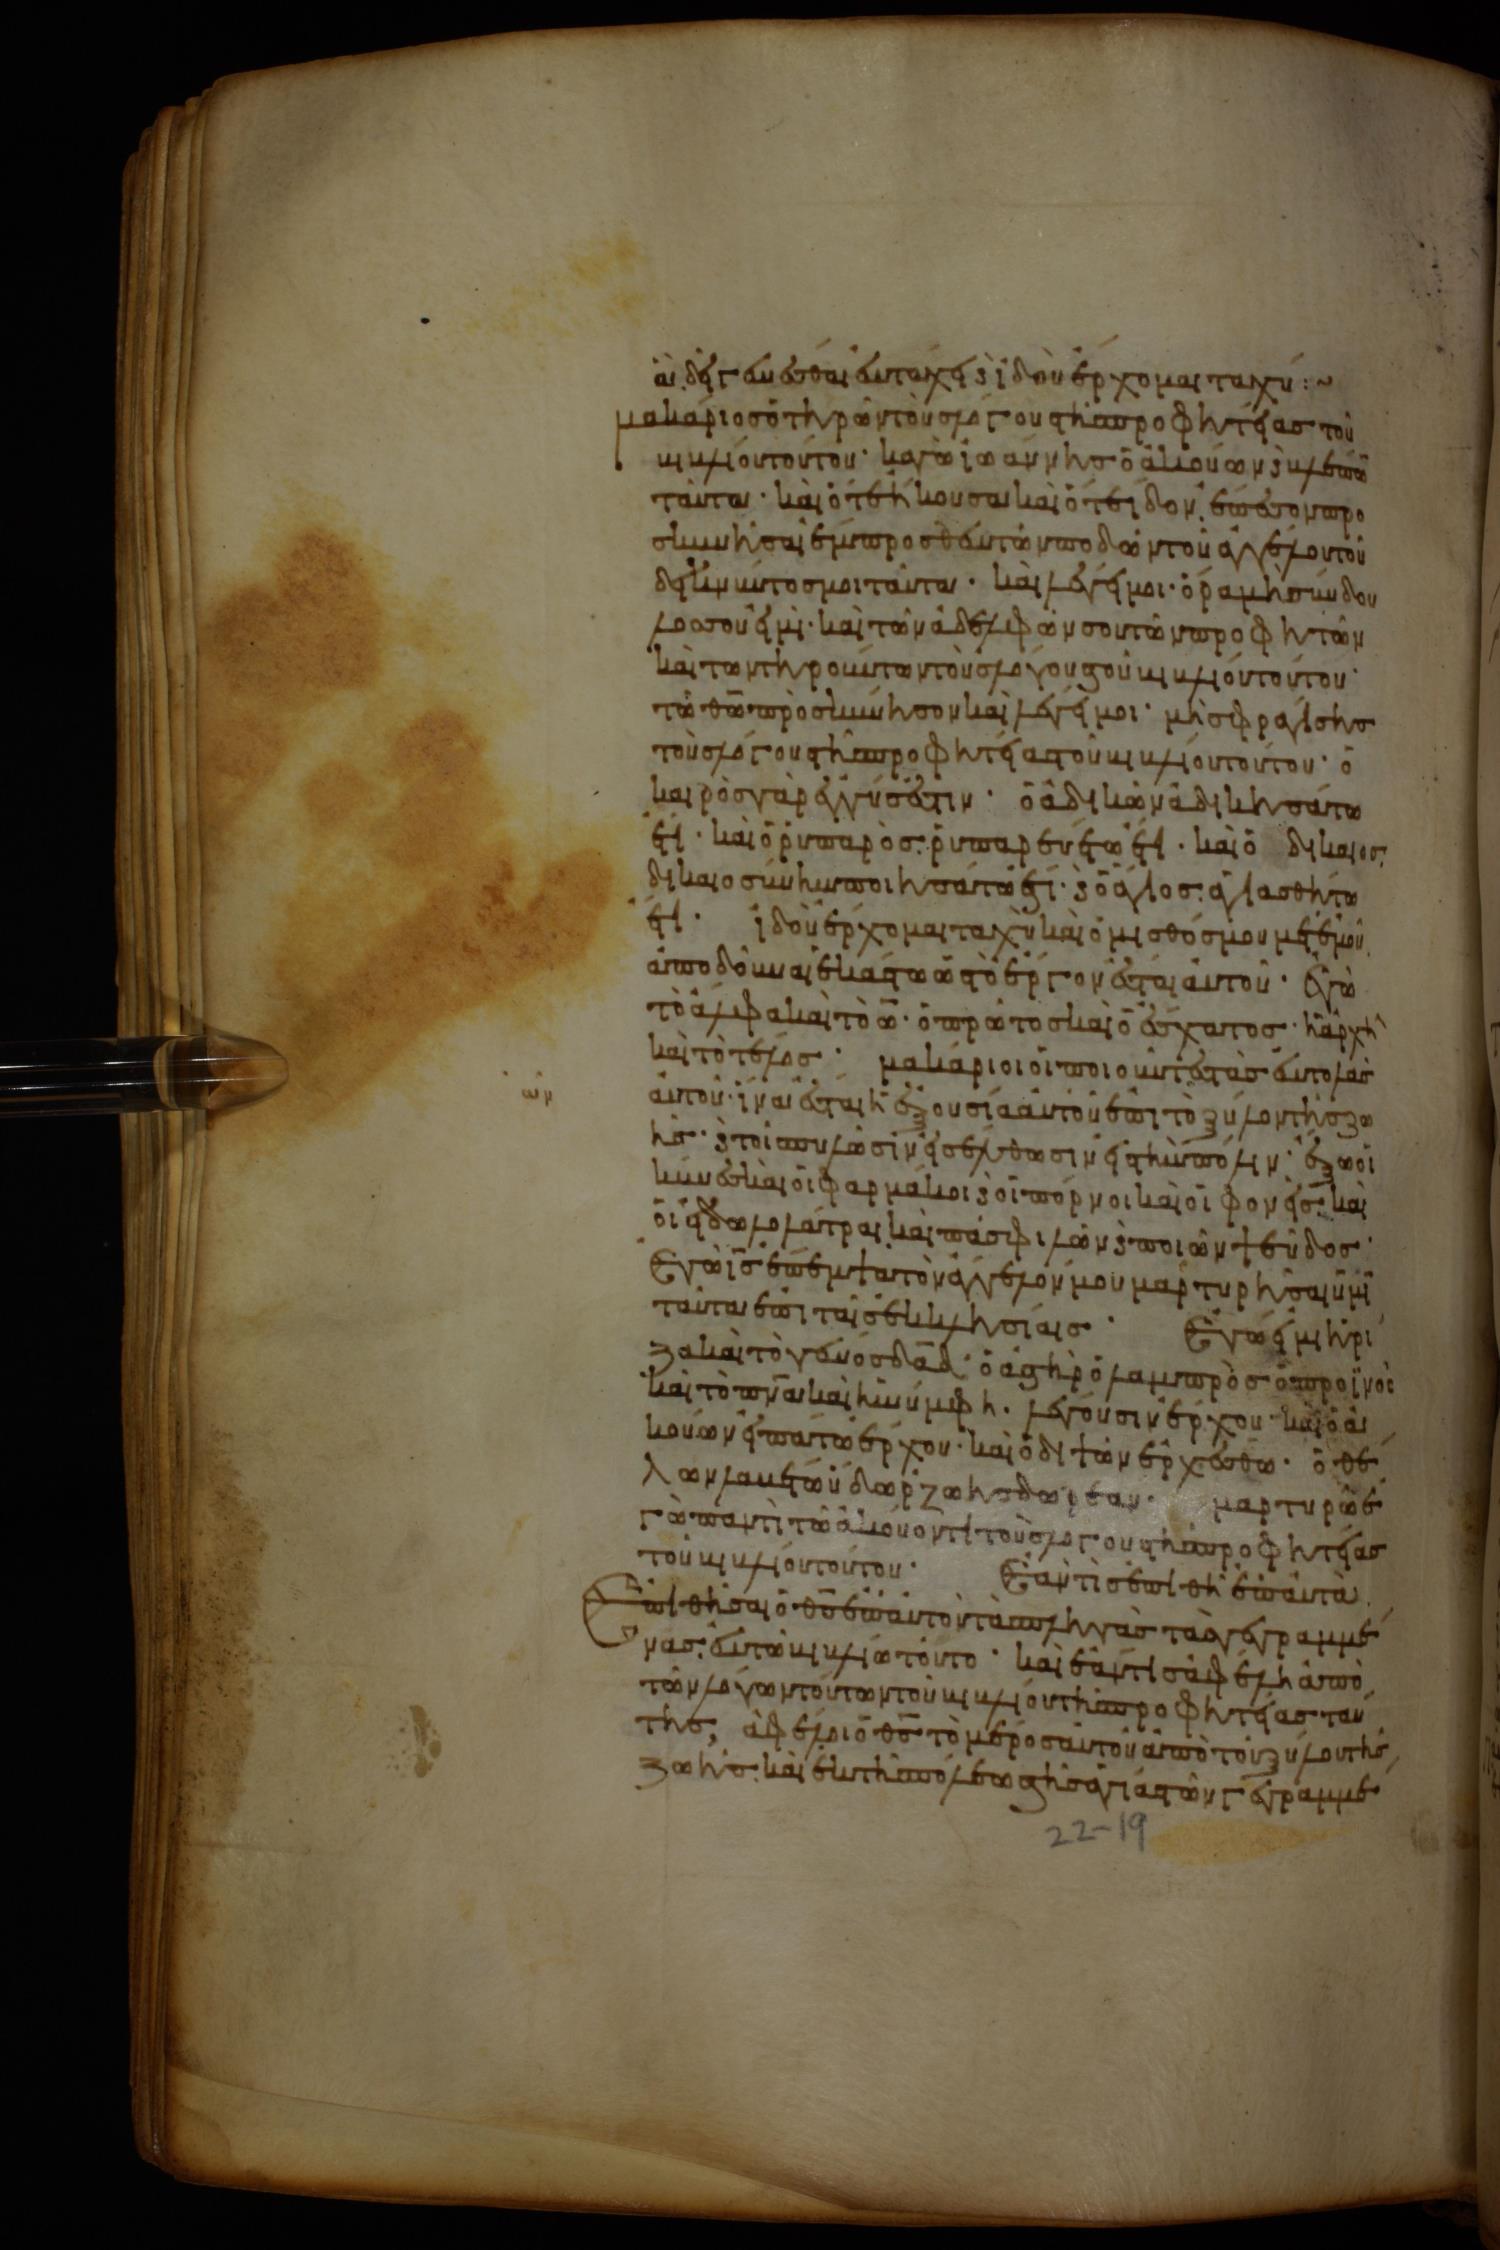 ἃ δεῖ γενέσθαι ἐν τάχει· ϗ ἰδοὺ ἔρχομαι ταχύ :~
μακάριος ὁ τηρῶν τοὺς λόγους τῆς προφητείας τοῦ
βιβλίου τούτου· κἀγὼ ἰωάννης ὁ ἀκούων ϗ βλέπων
ταῦτα· καὶ ὅτε ἤκουσα καὶ ὅτε εἶδον, ἔπεσον προ
σκυνῆσαι ἔμπροσθεν τῶν ποδῶν τοῦ ἀγγέλου τοῦ
δεικνύντος μοι ταῦτα· καὶ λέγει μοι· ὅρα μὴ σύνδου
λός σου εἰμὶ· καὶ τῶν ἀδελφῶν σου τῶν προφητῶν
καὶ τῶν τηρούντων τοὺς λόγους τοῦ βιβλίου τούτου·
τῷ θῷ προσκύνησον καὶ λέγει μοι· μὴ σφραγίσης
τοὺς λόγους τῆς προφητείας τοῦ βιβλίου τούτου· ὁ
καιρὸς γὰρ ἐγγύς ἐστιν· ὁ ἀδικῶν ἀδικησάτω
ἔτι· καὶ ὁ ῥυπαρὸς ῥυπαρευθήτω ἔτι· καὶ ὁ δίκαιος
δικαιοσύνην ποιησάτω ἔτι· ϗ ὁ ἅγιος ἁγιασθήτω
ἔτι· ἰδοὺ ἔρχομαι ταχὺ καὶ ὁ μισθός μου μετ ἐμοῦ
ἀποδοῦναι ἑκάστῳ ὡς τὸ ἔργον ἔσται αὐτοῦ· Ἐγὼ
τὸ ἄλφα καὶ τὸ ω̄· ὁ πρῶτος καὶ ὁ ἔσχατος· ἡ ἀρχὴ
καὶ τὸ τέλος· μακάριοι οἱ ποιοῦντες τὰς ἐντολὰς
αὐτοῦ· ἵνα ἔσται ἡ ἐξουσία αὐτοῦ ἐπὶ τὸ ξύλον τῆς ζω
ῶν
ῆς· ϗ τοῖς πυλῶσιν εἰσέλθωσιν εἰς τὴν πόλιν· ἔξω οἱ
κύνες καὶ οἱ φαρμάκοι ϗ οἱ πόρνοι καὶ οἱ φονεῖς· καὶ
οἱ εἰδωλολάτραι καὶ πᾶς φιλῶν ϗ ποιῶν ψεῦδος·
Ἐγὼ ις̄ ἔπεμψα τὸν ἄγγελόν μου μαρτυρῆσαι ὑμῖν
ταῦτα ἐπὶ ταῖς ἐκκλησίαις· Ἐγώ εἰμι ἡ ῥί
ζα καὶ τὸ γένος δᾱδ· ὁ ἀστὴρ ὁ λαμπρὸς ὁ προϊνὸς
καὶ τὸ πνᾱ καὶ ἡ νύμφη· λέγουσιν ἔρχου· καὶ ὁ ἀ
κούων εἰπάτω ἔρχου· καὶ ὁ διψῶν ἐρχέσθω· ὁ θέ
λων λαβέτω ὕδωρ ζωῆς δωρεάν· μαρτυρῶ ἐ
γὼ παντὶ τῷ ἀκούοντι τοὺς λόγους τῆς προφητείας
τοῦ βιβλίου τούτου· Ἐάν τις ἐπιθῇ ἐπ αὐτὰ
Ἐπιθήσαι ὁ θς̄ ἐπ αὐτὸν τὰς πληγὰς τὰς γεγραμμέ
νας ἐν τῷ βιβλίῳ τούτῳ· καὶ ἐάν τις ἀφέλη ἀπὸ
τῶν λόγων τούτων τοῦ βιβλίου τῆς προφητείας ταύ
της, ἀφέλοι ὁ θς̄ τὸ μέρος αὐτοῦ ἀπὸ τοῦ ξύλου τῆς
ζωῆς καὶ ἐκ τῆς πόλεως τῆς ἁγίας τῶν γεγραμμέ
22-19